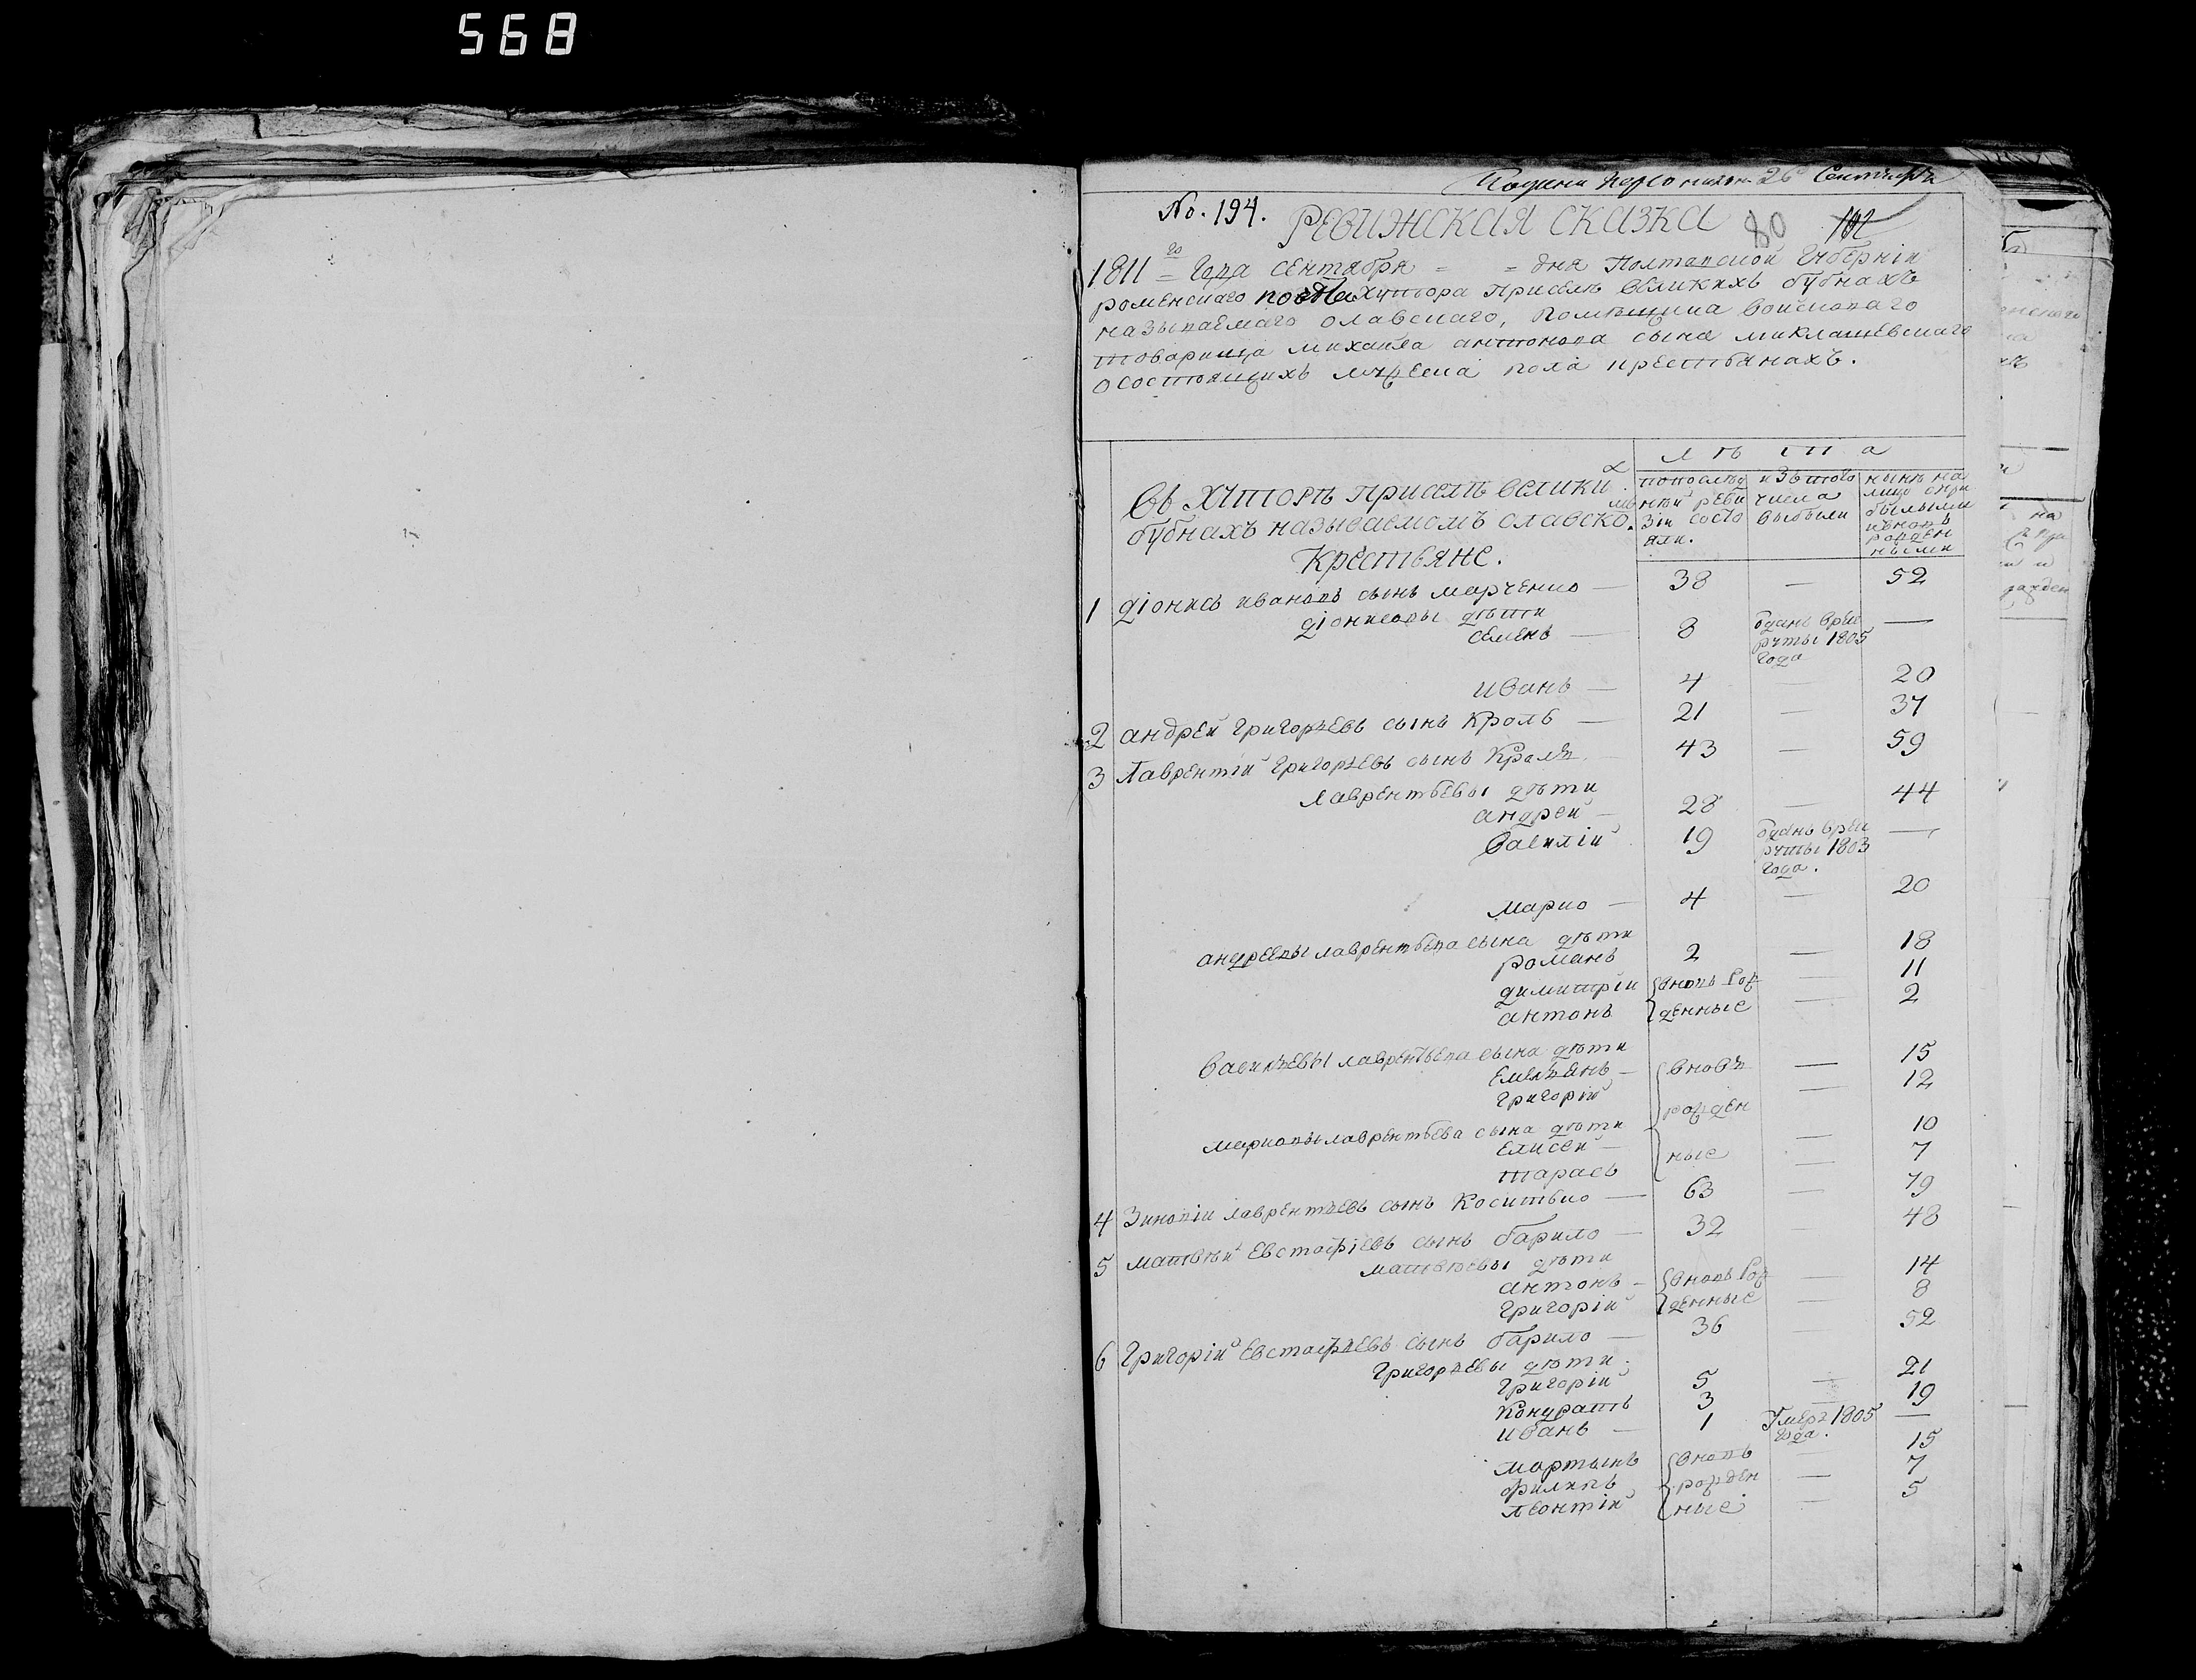 568
26 Сентября
No. 194. РЕВИЖСКАЯ СКАЗКА 80
1811го Года сентября = = дня Полтавской Губерніи
роменскаго повѣта хутора присѣлѣ великихъ бубнахъ
называемаго славскаго, помѣщика войсковаго
товарища михаила антонова сына миклашевскаго
о состоящихъ мужеска пола крестьянахъ.
лѣта
Въ хуторѣ присѣлѣ велики х
бубнахъ называемомъ славско мъ.
Крестьяне.
по послѣд ней реви зіи состо яли.
изъ того числа выбыли
нынѣ на лицо с при былыми и вновь рожден ными
1 діонисъ ивановъ сынъ марченко — 38 — 52
діонисовы дѣти
семенъ — 8 отданъ в рек руты 1805 года —
иванъ — 4 — 20
2 андрей григорьевъ сынъ кроль — 21 — 37
3 Лаврентій григорьевъ сынъ Кроль — 43 — 59
лаврентьевы дѣти
андрей — 28 — 44
василій 19 отданъ в рек руты 1803 года. —
марко — 4 — 20
андреевы лаврентьева сына дѣти
романъ 2 — 18
димитріи { вновь рож — 11
антонъ { денные — 2
васильевы лаврентьева сына дѣти
емельянъ — { вновь — 15
григорій — 12
рожден
марковы лаврентьева сына дѣти
елисей — — 10
тарасъ { ные — 7
4 Зиновіи лаврентьевъ сынъ Коситько — 63 — 79
5 матвѣй Евстафіевъ сынъ барило — 32 — 48
матвѣевы дѣти
антонъ — { вновь рож — 14
григорій { денные — 8
6 Григорій Евстафьевъ сынъ барило — 36 — 52
Григорьевы дѣти.
григорій 5 — 21
Кондратъ 3 — 19
иванъ — 1 Умеръ 1805 года. —
мартынъ { вновь — 15
филипъ { рожден — 7
леонтій { ные — 5